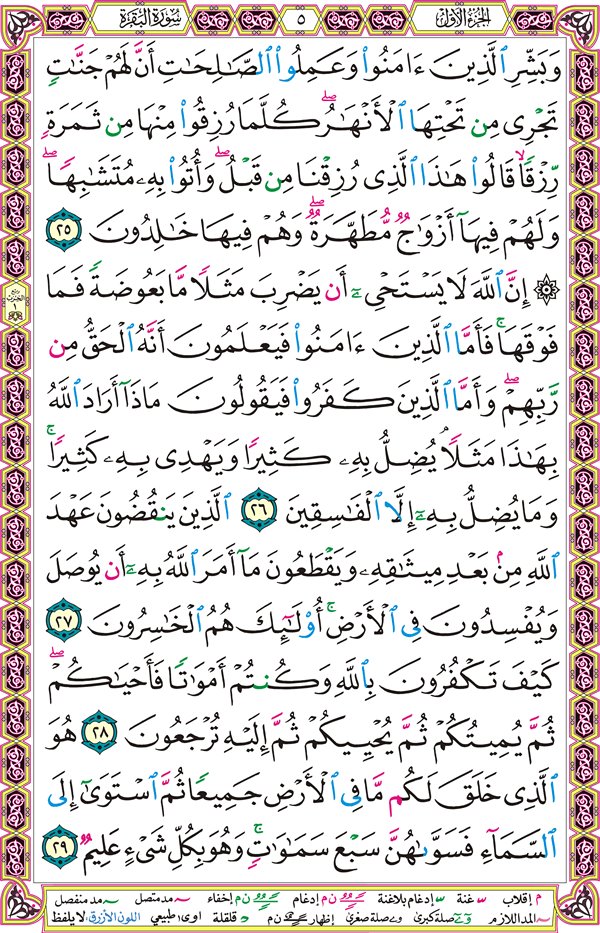 الجزء الأول
٥
سورة البقرة
وَبَشِّرِ ٱلَّذِينَ ءَامَنُوا۟ وَعَمِلُوا۟ ٱلصَّـٰلِحَـٰتِ أَنَّ لَهُمْ جَنَّـٰتٍ
تَجْرِى مِن تَحْتِهَا ٱلْأَنْهَـٰرُ ۖ كُلَّمَا رُزِقُوا۟ مِنْهَا مِن ثَمَرَةٍ
رِّزْقًا ۙ قَالُوا۟ هَـٰذَا ٱلَّذِى رُزِقْنَا مِن قَبْلُ ۖ وَأُتُوا۟ بِهِۦ مُتَشَـٰبِهًا ۖ
وَلَهُمْ فِيهَآ أَزْوَٰجٌ مُّطَهَّرَةٌ ۖ وَهُمْ فِيهَا خَـٰلِدُونَ ٢٥
۞ إِنَّ ٱللَّهَ لَا يَسْتَحْىِۦٓ أَن يَضْرِبَ مَثَلًا مَّا بَعُوضَةً فَمَا
فَوْقَهَا ۚ فَأَمَّا ٱلَّذِينَ ءَامَنُوا۟ فَيَعْلَمُونَ أَنَّهُ ٱلْحَقُّ مِن
رَّبِّهِمْ ۖ وَأَمَّا ٱلَّذِينَ كَفَرُوا۟ فَيَقُولُونَ مَاذَآ أَرَادَ ٱللَّهُ
بِهَـٰذَا مَثَلًا ۘ يُضِلُّ بِهِۦ كَثِيرًا وَيَهْدِى بِهِۦ كَثِيرًا ۚ
وَمَا يُضِلُّ بِهِۦٓ إِلَّا ٱلْفَـٰسِقِينَ ٢٦ ٱلَّذِينَ يَنقُضُونَ عَهْدَ
ٱللَّهِ مِنۢ بَعْدِ مِيثَـٰقِهِۦ وَيَقْطَعُونَ مَآ أَمَرَ ٱللَّهُ بِهِۦٓ أَن يُوصَلَ
وَيُفْسِدُونَ فِى ٱلْأَرْضِ ۚ أُو۟لَـٰٓئِكَ هُمُ ٱلْخَـٰسِرُونَ ٢٧
كَيْفَ تَكْفُرُونَ بِٱللَّهِ وَكُنتُمْ أَمْوَٰتًا فَأَحْيَـٰكُمْ ۖ
ثُمَّ يُمِيتُكُمْ ثُمَّ يُحْيِيكُمْ ثُمَّ إِلَيْهِ تُرْجَعُونَ ٢٨ هُوَ
ٱلَّذِى خَلَقَ لَكُم مَّا فِى ٱلْأَرْضِ جَمِيعًا ثُمَّ ٱسْتَوَىٰٓ إِلَى
ٱلسَّمَآءِ فَسَوَّىٰهُنَّ سَبْعَ سَمَـٰوَٰتٍ ۚ وَهُوَ بِكُلِّ شَىْءٍ عَلِيمٌ ٢٩
م إقلاب غنة إدغام بلاغنة ن م إدغام ن م إخفاء مد متصل مد منفصل
المد اللازم صلة كبرى صلة صغرى إظهار ن م قلقلة اوى: طبيعي اللون الأزرق: لا يلفظ